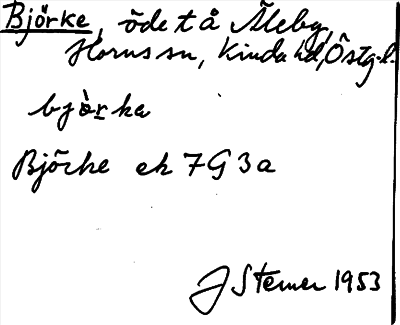 Björke, öde t å Åleby,
Horns sn, Kinda hd, Östg.l.
bjò̀rka
Björke ek 7G3a
J Sterner 1953